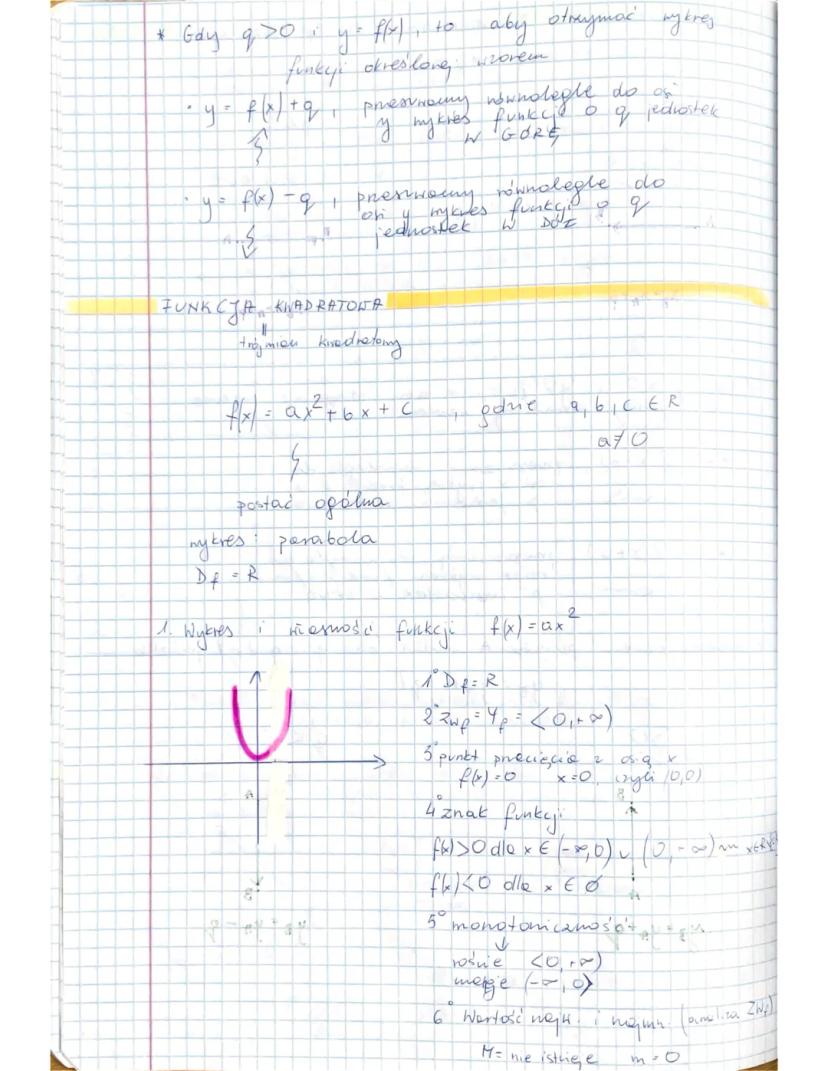 * Gdy q>0 i y = f(x), to aby otrzymać wykres
funkcji określonej wzorem
· y = f(x)+q, przesuwamy równolegle do osi
y wykres funkcji o q jednostek
W GÓRĘ
· y = f(x) -q, przesuwamy równolegle do
osi y wykres funkcji o q
jednostek W DÓŁ
FUNKCJA KWADRATOWA
=
trójmian kwadratowy
f(x) = ax²+bx+c, gdzie a,b,c ∈ R
a≠0
postać ogólna
wykres: parabola
Df = R
1. Wykres i własności funkcji f(x)=ax²
1° Df = R
2° ZWf = Yf = <0,+∞)
3° punkt przecięcia z osią x
f(x)=0 x=0, czyli (0,0)
4° znak funkcji
f(x)>0 dla x ∈ (-∞,0) ∪ (0,-∞)
f(x)<0 dla x ∈ ∅
5° monotoniczność
rośnie <0,+∞)
maleje (-∞,0>
6° Wartość najw. i najmn. (analiza ZWf)
M= nie istnieje m=0